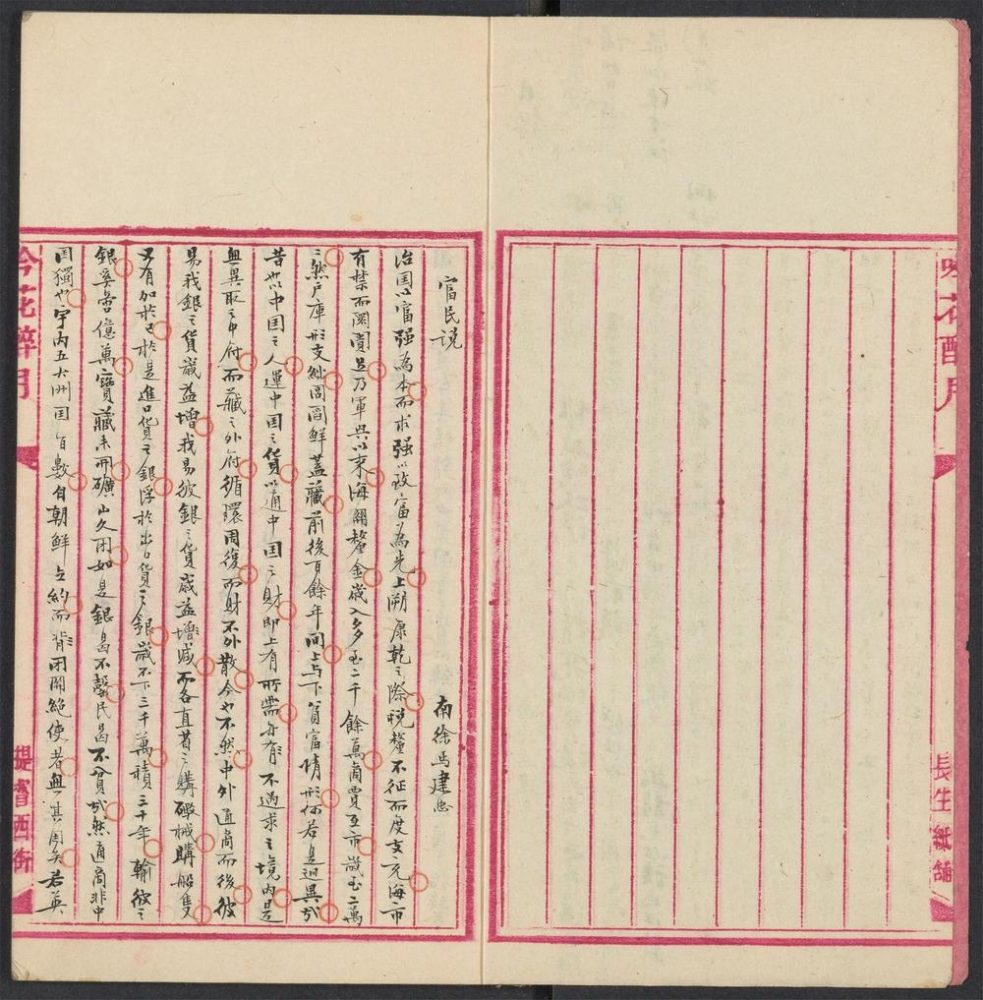 吟花醉月
長生紙舖
富民说
南徐馬建忠
治国以富强為本而求强以致富為先上溯康乾之際税釐不征而度支充海市
有禁而闤闠足乃軍興以来海關釐金歲入多至二千餘萬商賈互市歲至二萬
〻然户庫形支絀閭閻鮮蓋藏前後百餘年间上与下貧富情形何若是迥異哉
昔也以中国之人運中国之貨以通中国之財即上有所需亦有不過求之境内是
無異取之中府而藏之外府循環周復而財不外散今也不然中外通商而後彼
易我銀之貨歲益增我易彼銀之貨歲益增減而各直省之購礮械購船隻
又有加於已於是進口貨之銀浮於出口貨之銀歲不下三千萬積三十年輸彼之
銀奚啻億萬寶藏未開礦山久閉如是銀曷不罄民曷不貧哉然通商非中
国獨也宇内五大洲国百數自朝鮮立約而背閉關絕使者無其國矣若英
吟花醉月
提督西街